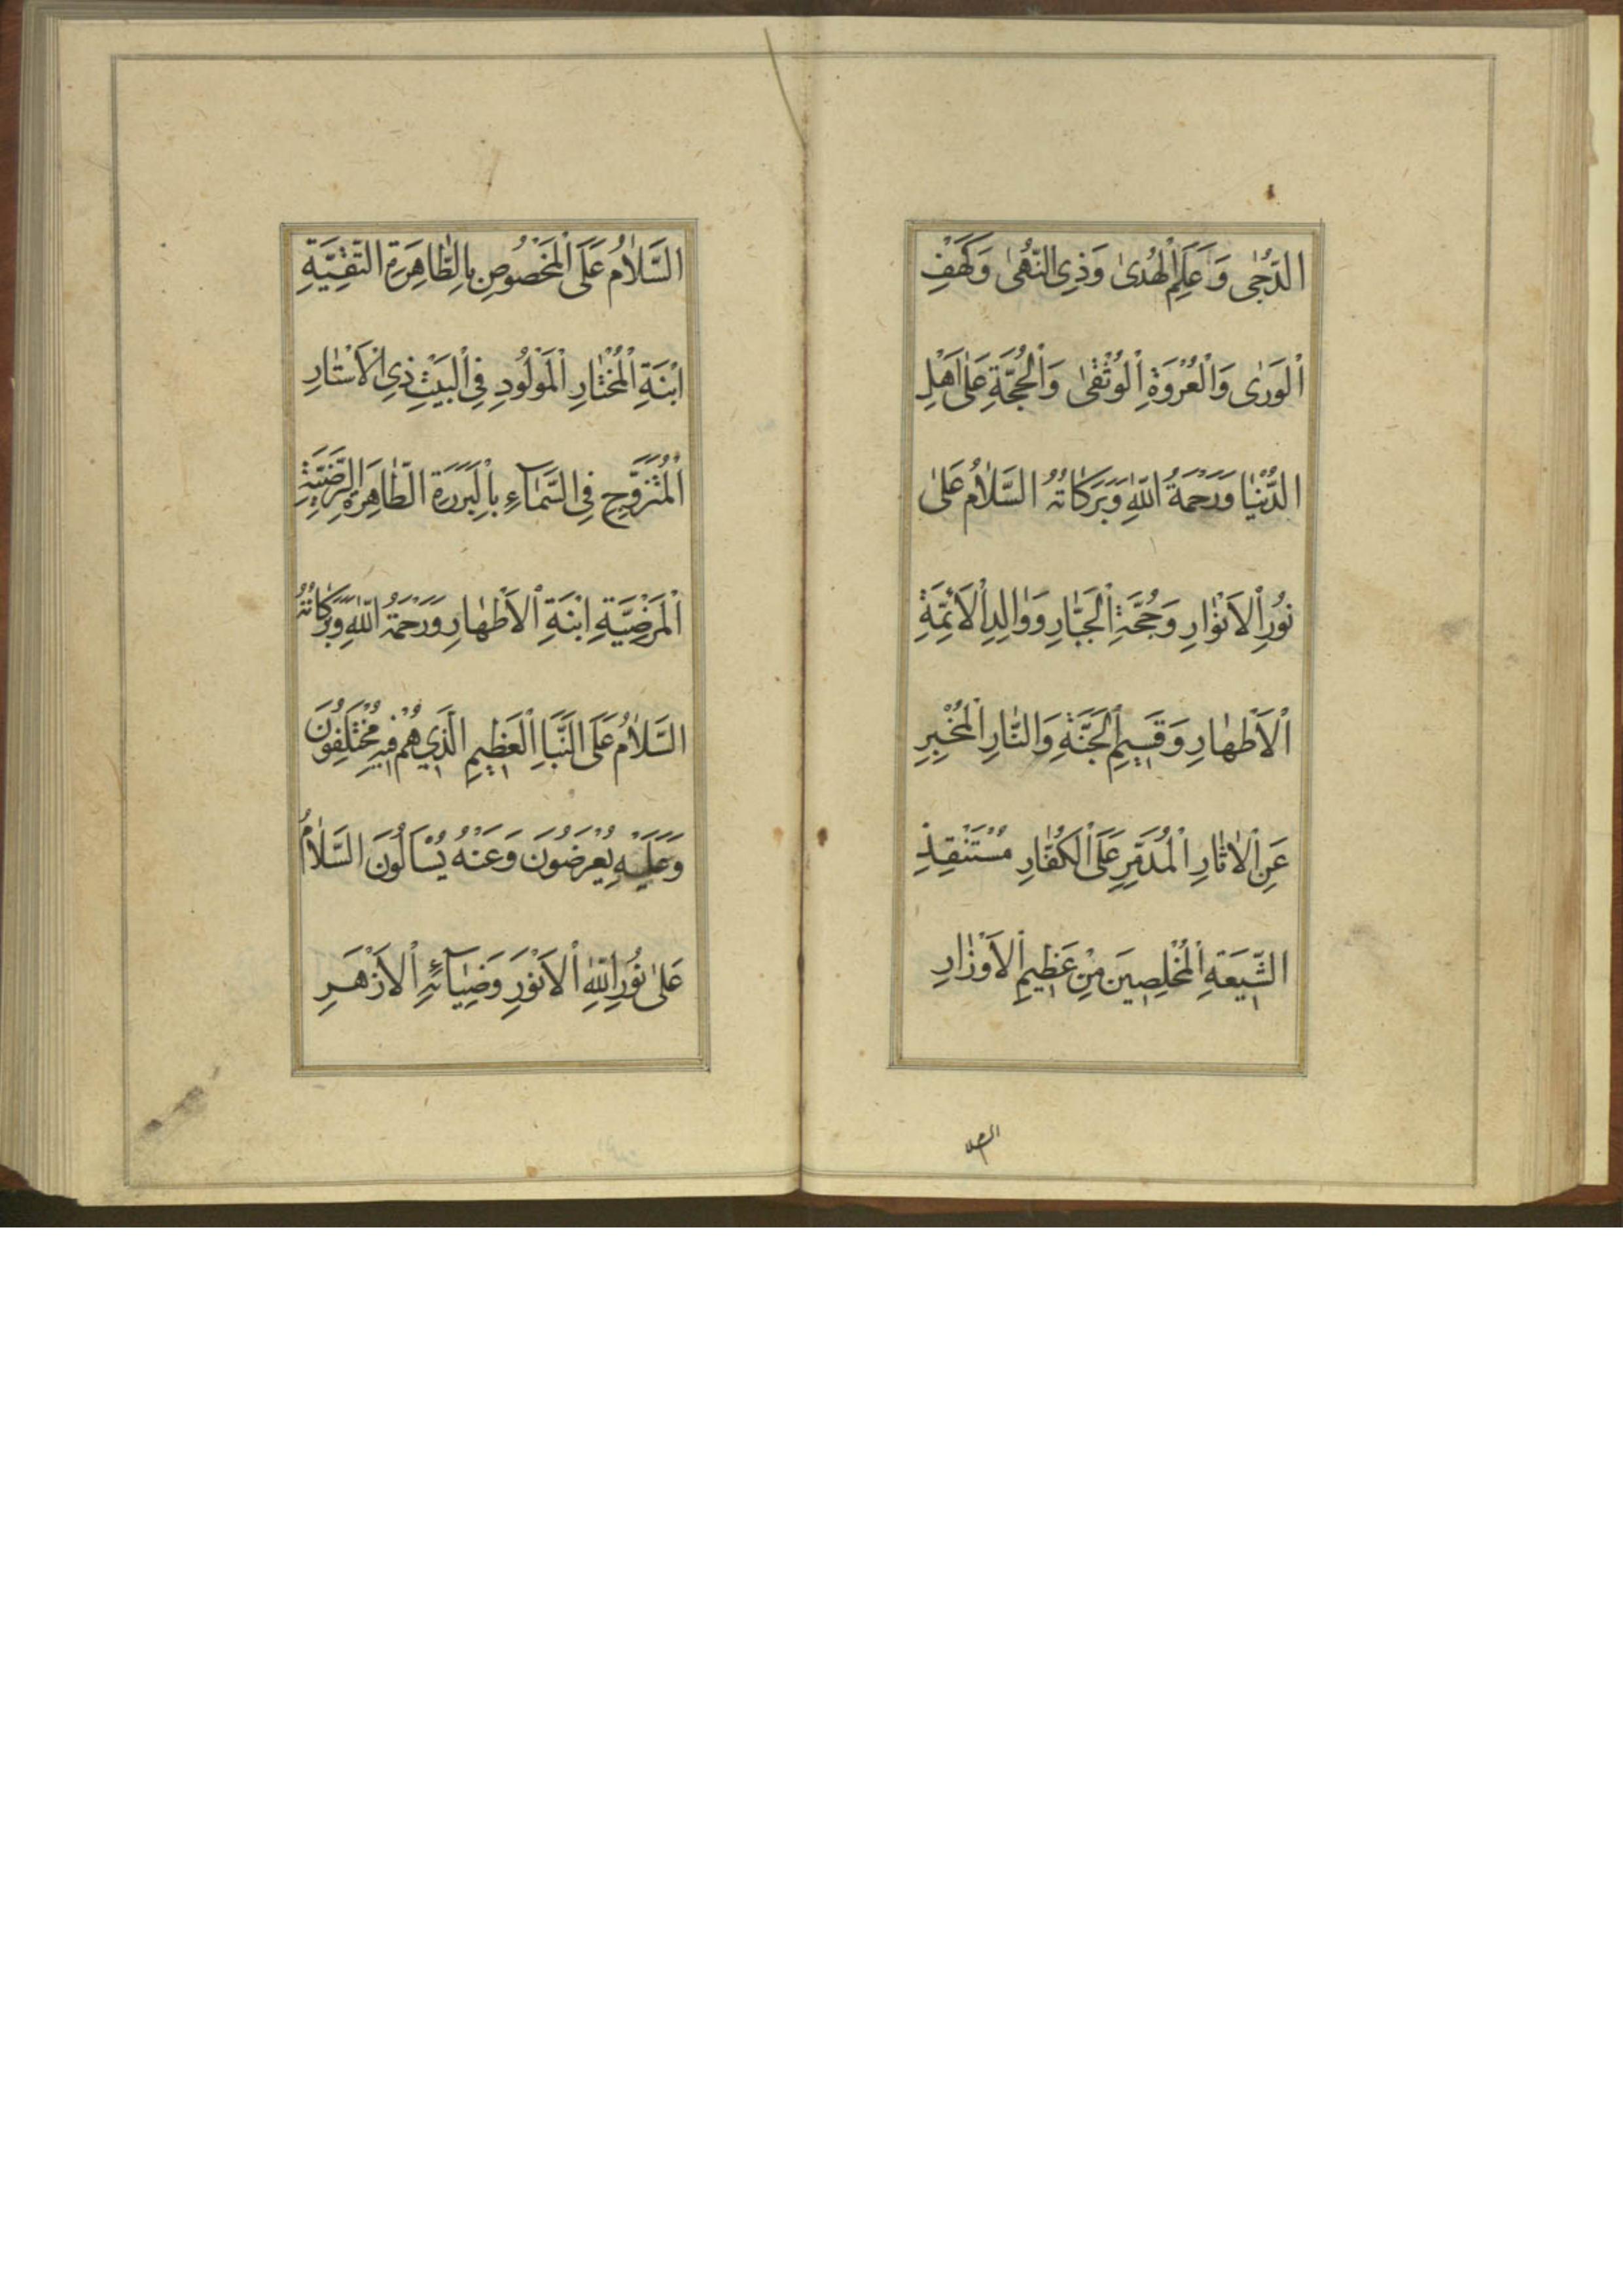 الدُّجٰى وَعَلَمِ الْهُدىٰ وَذِى النُّهىٰ وَكَهْفِ
الْوَرٰى وَالْعُرْوَةِ الْوُثْقىٰ وَالْحُجَّةِ عَلىٰ اَهْلِ
الدُّنْيٰا وَرَحْمَةُ اللّٰهِ وَبَرَكاتُهُ السَّلٰامُ عَلىٰ
نُورِ الْاَنْوٰارِ وَحُجَّةِ الْجَبّٰارِ وَوٰالِدِ الْاَئِمَّةِ
الْاَطْهٰارِ وَقَسِيمِ الْجَنَّةِ وَالنّٰارِ الْمُخْبِرِ
عَنِ الْاٰثٰارِ الْمُدَمِّرِ عَلَى الْكُفّٰارِ مُسْتَنْقِذِ
الشِّيعَةِ الْمُخْلِصِينَ مِنْ عَظِيمِ الْاَوْزٰارِ
السلا
السَّلٰامُ عَلَى الْمَخْصُوصِ بِالطّٰاهِرَةِ التَّقِيَّةِ
ابْنَةِ الْمُخْتٰارِ الْمَوْلُودِ فِى الْبَيْتِ ذِى الْاَسْتٰارِ
الْمُتَزَوِّجِ فِى السَّمٰآءِ بِالْبَرَرَةِ الطّٰاهِرَةِ الرَّضِيَّةِ
الْمَرْضِيَّةِ ابْنَةِ الْاَطْهٰارِ وَرَحْمَةُ اللّٰهِ وَبَرَكاتُهُ
السَّلٰامُ عَلَى النَّبَاِ الْعَظِيمِ الَّذِي هُمْ فِيهِ مُخْتَلِفُونَ
وَعَلَيْهِ يُعْرَضُونَ وَعَنْهُ يُسْاَلُونَ السَّلٰامُ
عَلىٰ نُورِ اللّٰهِ الْاَنْوَرِ وَضِيٰآئِهِ الْاَزْهَرِ